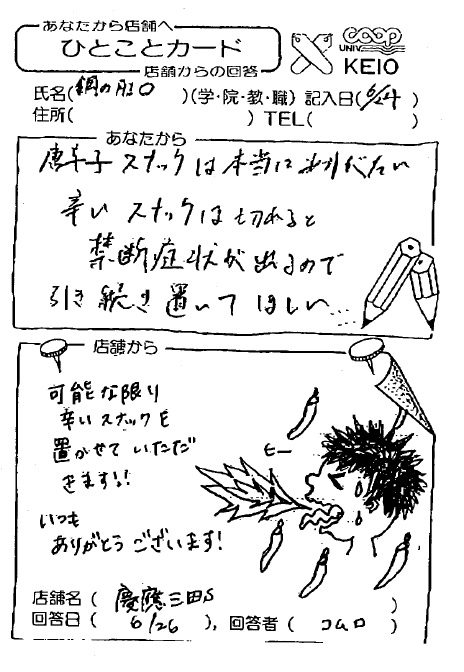 あなたから店舗へ
ひとことカード
店舗からの回答
COOP
UNIV.
KEIO
氏名(鋼の胃〇)(学・院・教・職) 記入日(6/24)
住所( ) TEL( )
あなたから
唐辛子スナックは本当にありがたい
辛いスナックは切れると
禁断症状が出るので
引き続き置いてほしい…
店舗から
可能な限り
辛いスナックを
置かせていただ
きます!!
いつも
ありがとうございます!
ヒー
店舗名( 慶應三田S )
回答日( 6/26 ), 回答者( コムロ )